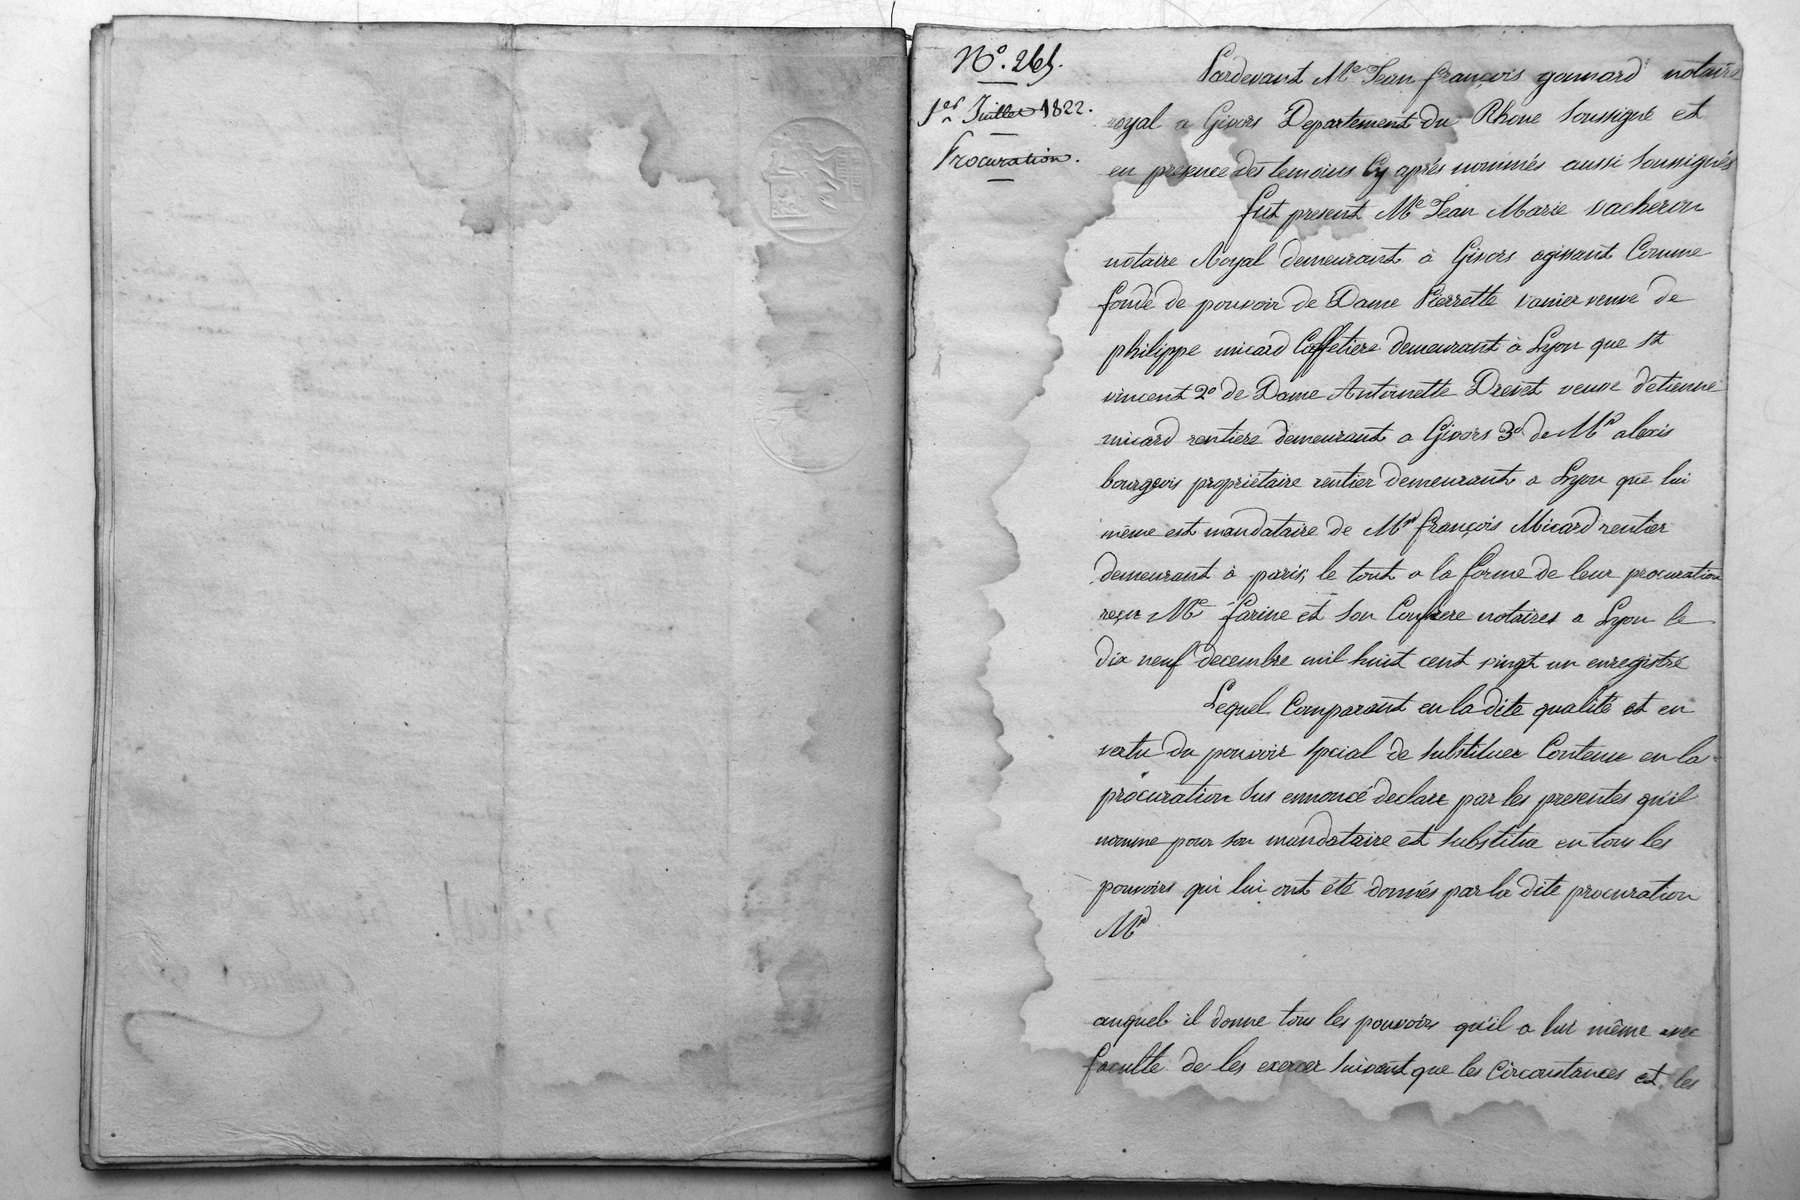 N.° 265.
1er Juillet 1822.
Procuration.
Pardevant Me Jean françois gonnard notaire
royal a Givors Departement du Rhone soussigné et
en presence des temoins Cy aprés nommés aussi soussignés
fut present Me Jean Marie vacheron
notaire Royal demeurant à Givors agissant Comme
fondé de pouvoir de Dame Pierrette vanier veuve de
philippe micard Caffetiere demeurant à Lyon que st
vincent 2° de Dame Antoinette Drevet veuve d'etienne
micard rentiere demeurant a Givors 3° de Mr alexis
bourgeois propriétaire rentier demeurant a Lyon que lui
même est mandataire de Mr françois Micard rentier
demeurant à paris, le tout a la forme de leur procuration
reçu Me farine et son Confrere notaires a Lyon le
dix neuf decembre mil huit cent vingt un enregistré
Lequel Comparant en la dite qualité et en
vertu du pouvoir spcial de substituer Contenu en la
procuration sus ennoncé declare par les presentes qu'il
nomme pour son mandataire et substitue en tous les
pouvoirs qui lui ont été donnés par la dite procuration
Mr
auquel il donne tous les pouvoirs qu'il a lui même avec
faculté de les exercer suivant que les Circonstances et les